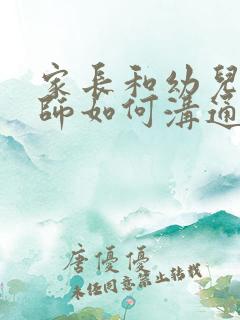 家長和幼兒
師如何溝通
唐優優
未经同意禁止转载